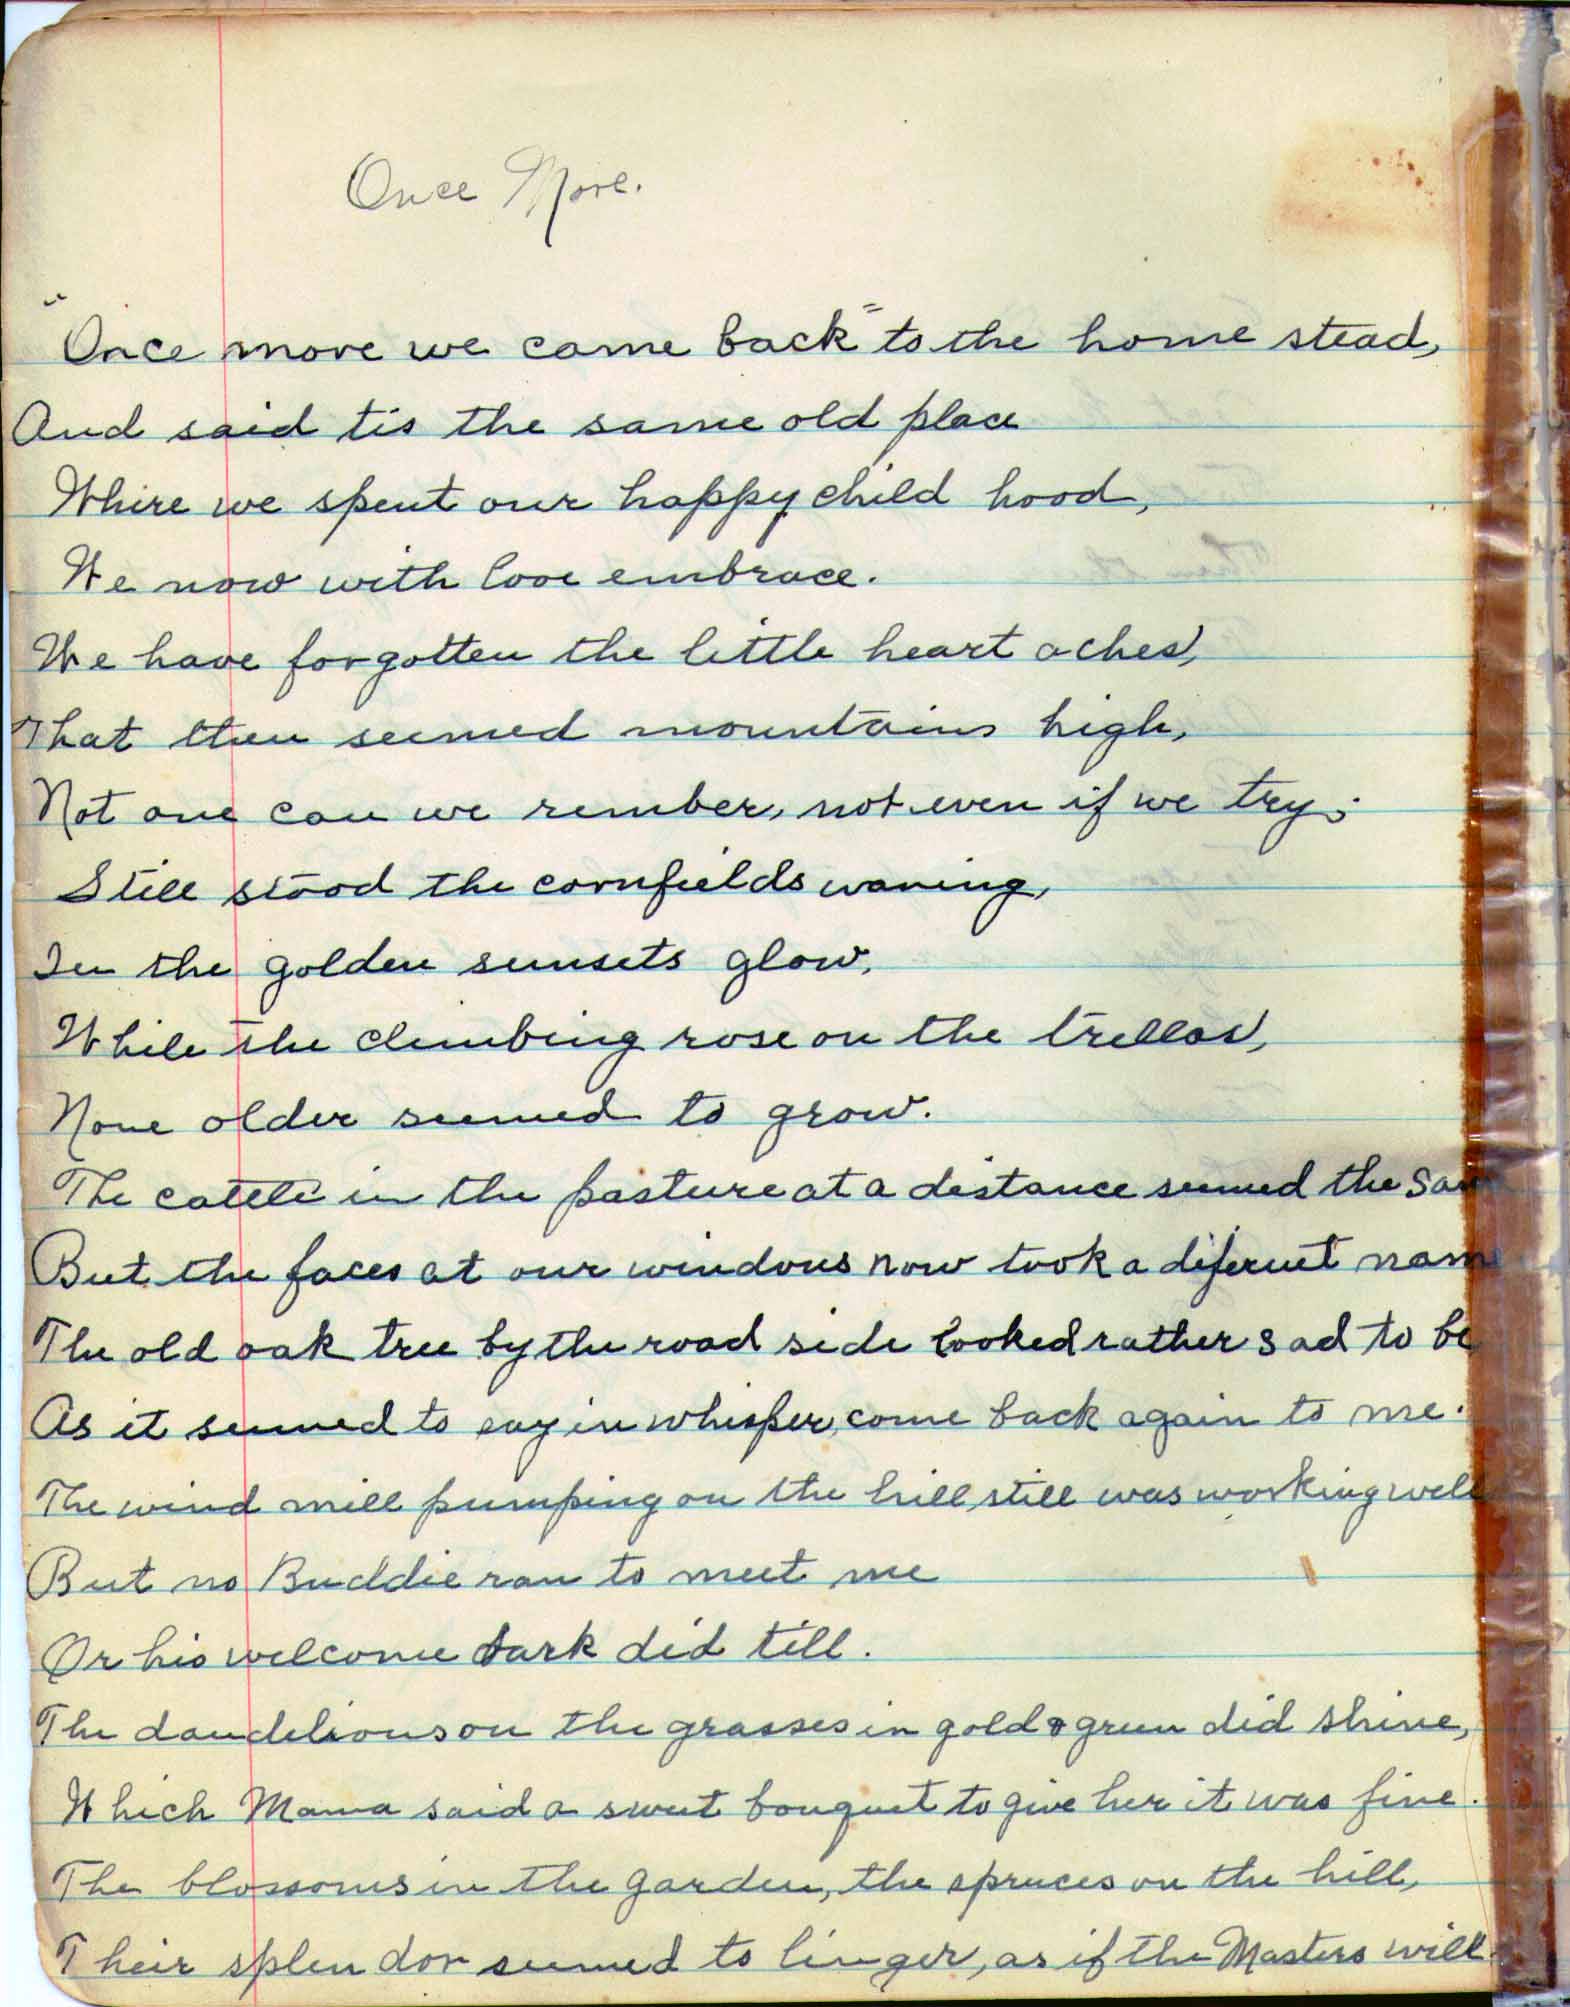 Once More.
"Once more we came back" to the home stead,
And said tis the same old place
Where we spent our happy child hood,
We now with love embrace.
We have forgotten the little heart aches,
That then seemed mountains high,
Not one can we rember, not even if we try;
Still stood the cornfields waving,
In the golden sunsets glow,
While the climbing rose on the trellas,
None older seemed to grow.
The cattle in the pasture at a distance seemed the Sam
But the faces at our windows now took a diferent name
The old oak tree by the road side looked rather sad to be
As it seemed to say in whisper, come back again to me.
The wind mill pumping on the hill, still was working well
But no Buddie ran to meet me
Or his welcome bark did till.
The dandelions on the grasses in gold & green did shine,
Which Mama said a sweet bouquet to give her it was fine.
The blossoms in the garden, the spruces on the hill,
Their splen dor seemed to linger, as if the Masters will